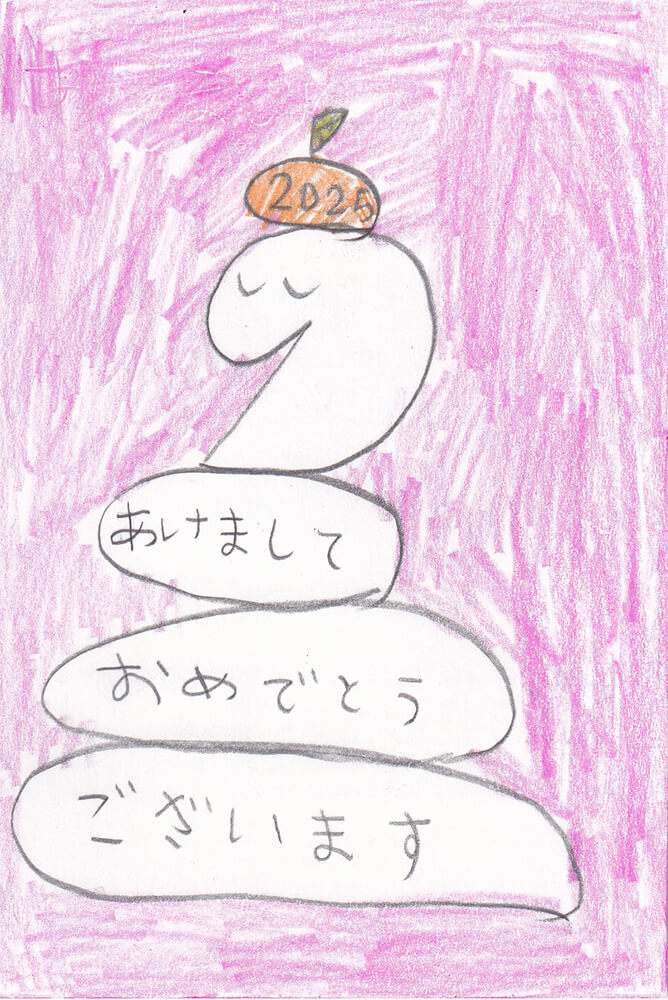 2025
あけまして
おめでとう
ございます